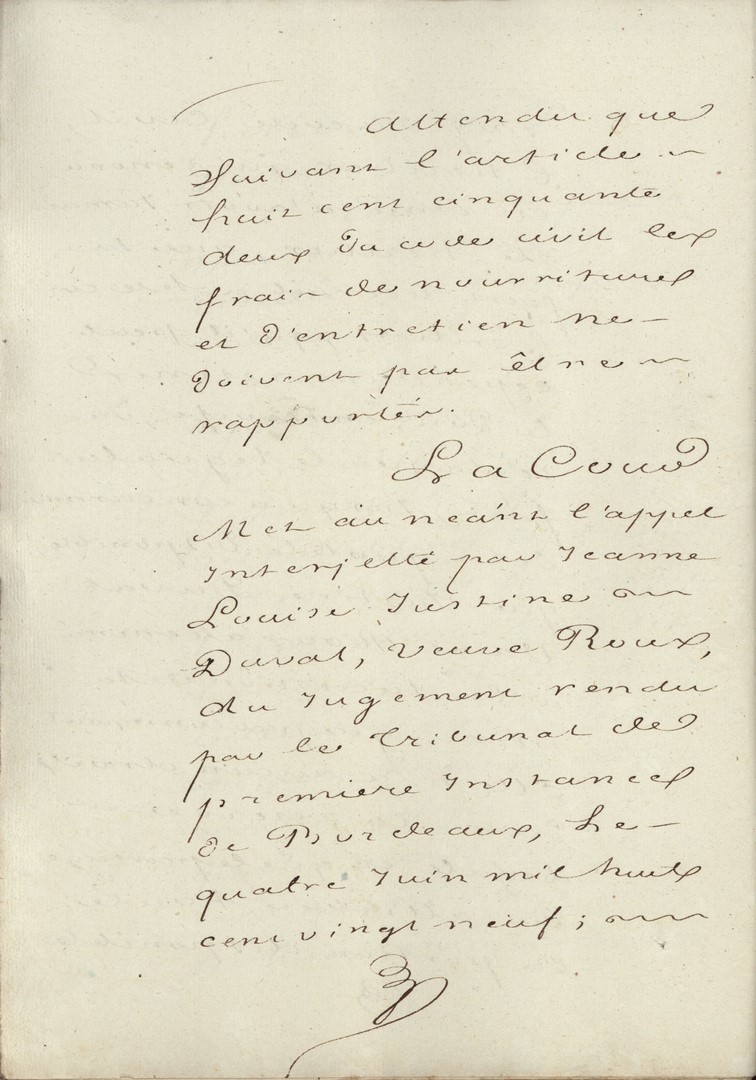 Attendu que
Suivant l'article
huit cent cinquante
deux Du code civil les
frais de nourritures
et D'entretien ne
Doivent pas être
rapportés.
La Cour
Met au néant l'appel
Interjetté par Jeanne
Louise Justine
Duval, veuve Roux,
du Jugement rendu
par le Tribunal de
première Instance
de Bordeaux, Le
quatre Juin mil huit
cent vingt neuf ;